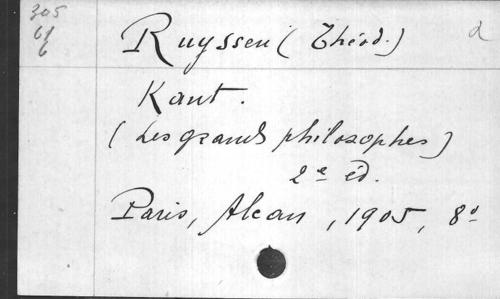 305
61
6
Ruyssen (Théod.) a
Kant.
(Les grands philosophes)
2e éd.
Paris, Alcan, 1905, 8°